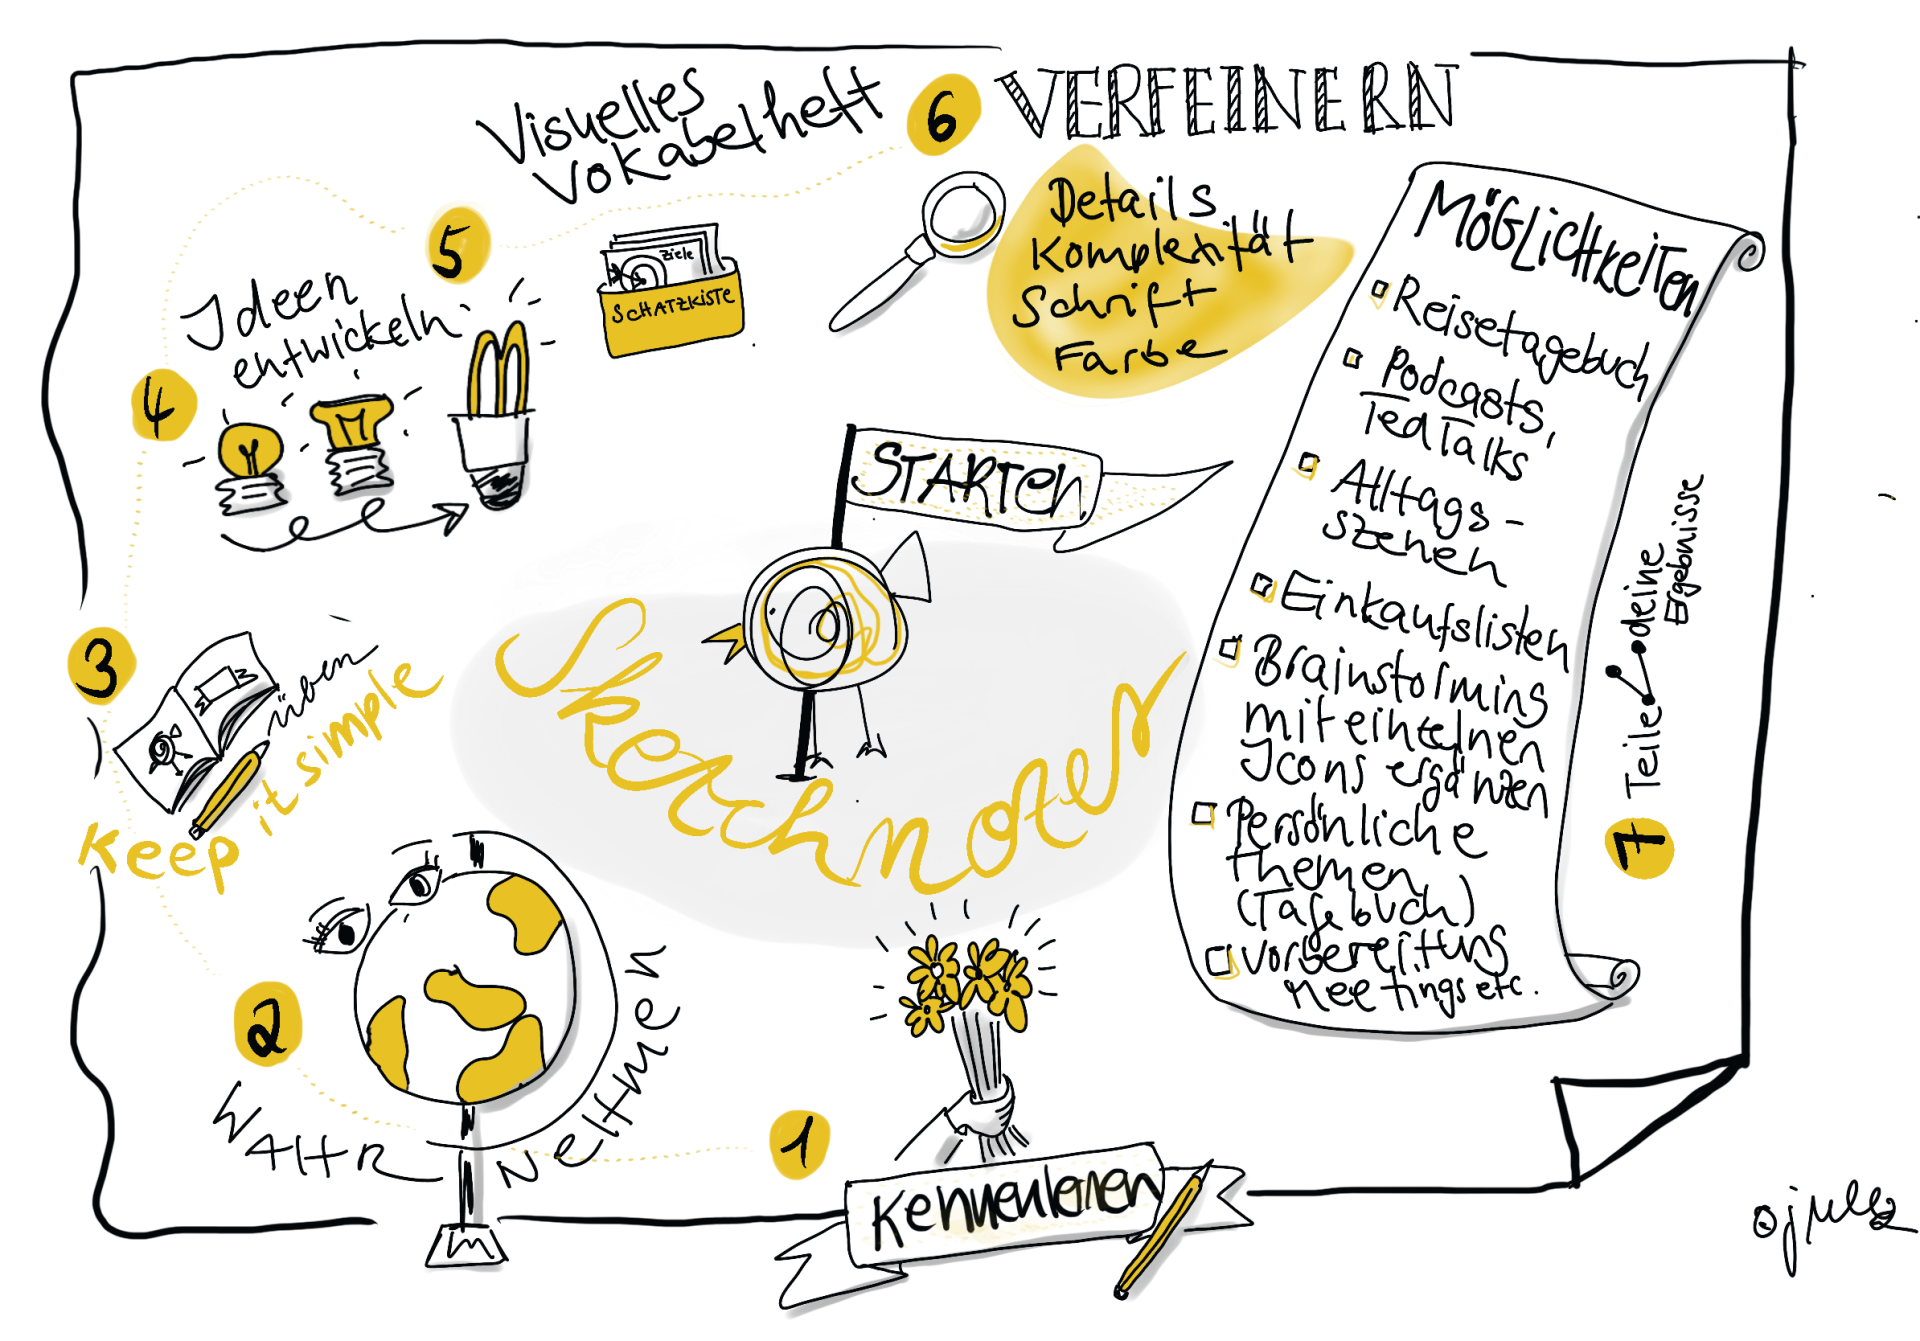 STARTEN
Sketchnotes
1
Kennenlernen
2
WAHR
NEHMEN
3
üben
Keep it simple
4
Ideen
entwickeln
5
Visuelles
Vokabelheft
Ziele
SCHATZKISTE
6
VERFEINERN
Details
Komplexität
Schrift
Farbe
MÖGLICHKEITEN
Reisetagebuch
Podcasts,
TedTalks
Alltags-
szenen
Einkaufslisten
Brainstorming
mit einzelnen
Icons ergänzen
Persönliche
Themen
(Tagebuch)
Vorbereitung
Meetings etc.
7
Teile deine
Ergebnisse